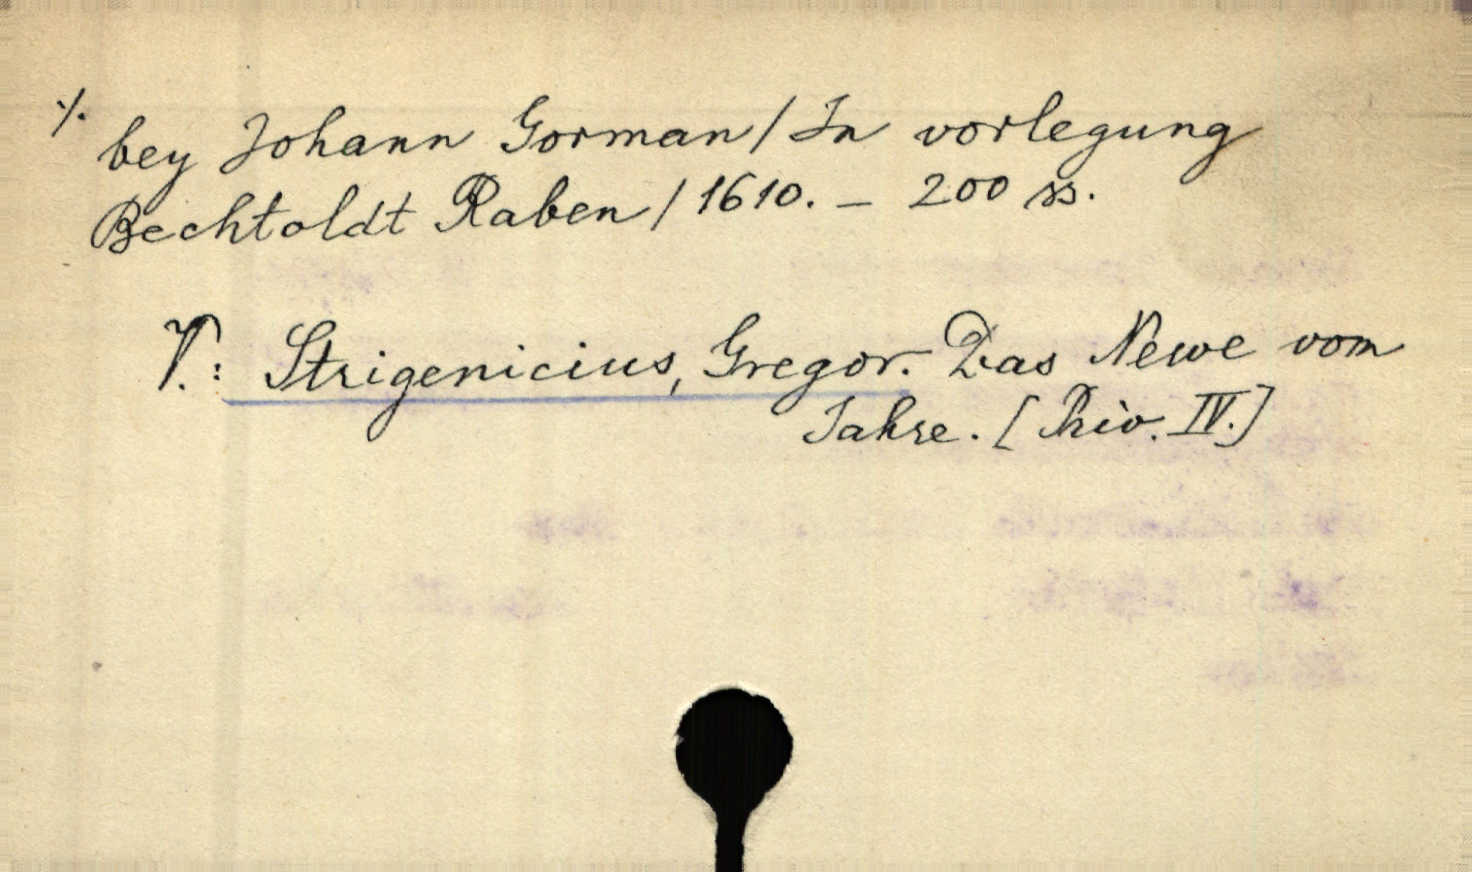 ./.
bey Johann Gorman / In vorlegung
Bechtoldt Raben / 1610. – 200 ss.
V.: Strigenicius, Gregor. Das Newe vom
Jahre. [Priv. IV.]